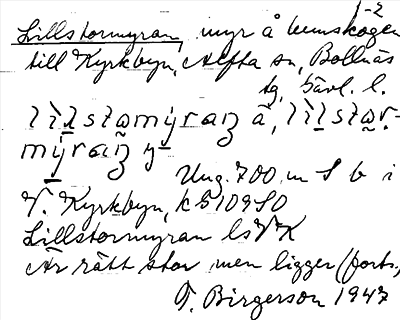 1-2
Lillstormyran, myr å hemskogen
till Kyrkbyn, Alfta sn, Bollnäs
tg, Gävl. l.
Ung. 700 m S b i
V. Kyrkbyn, k 5109 SO
Lillstormyran ls VK
Är rätt stor men ligger (forts.)
T. Birgerson 1947